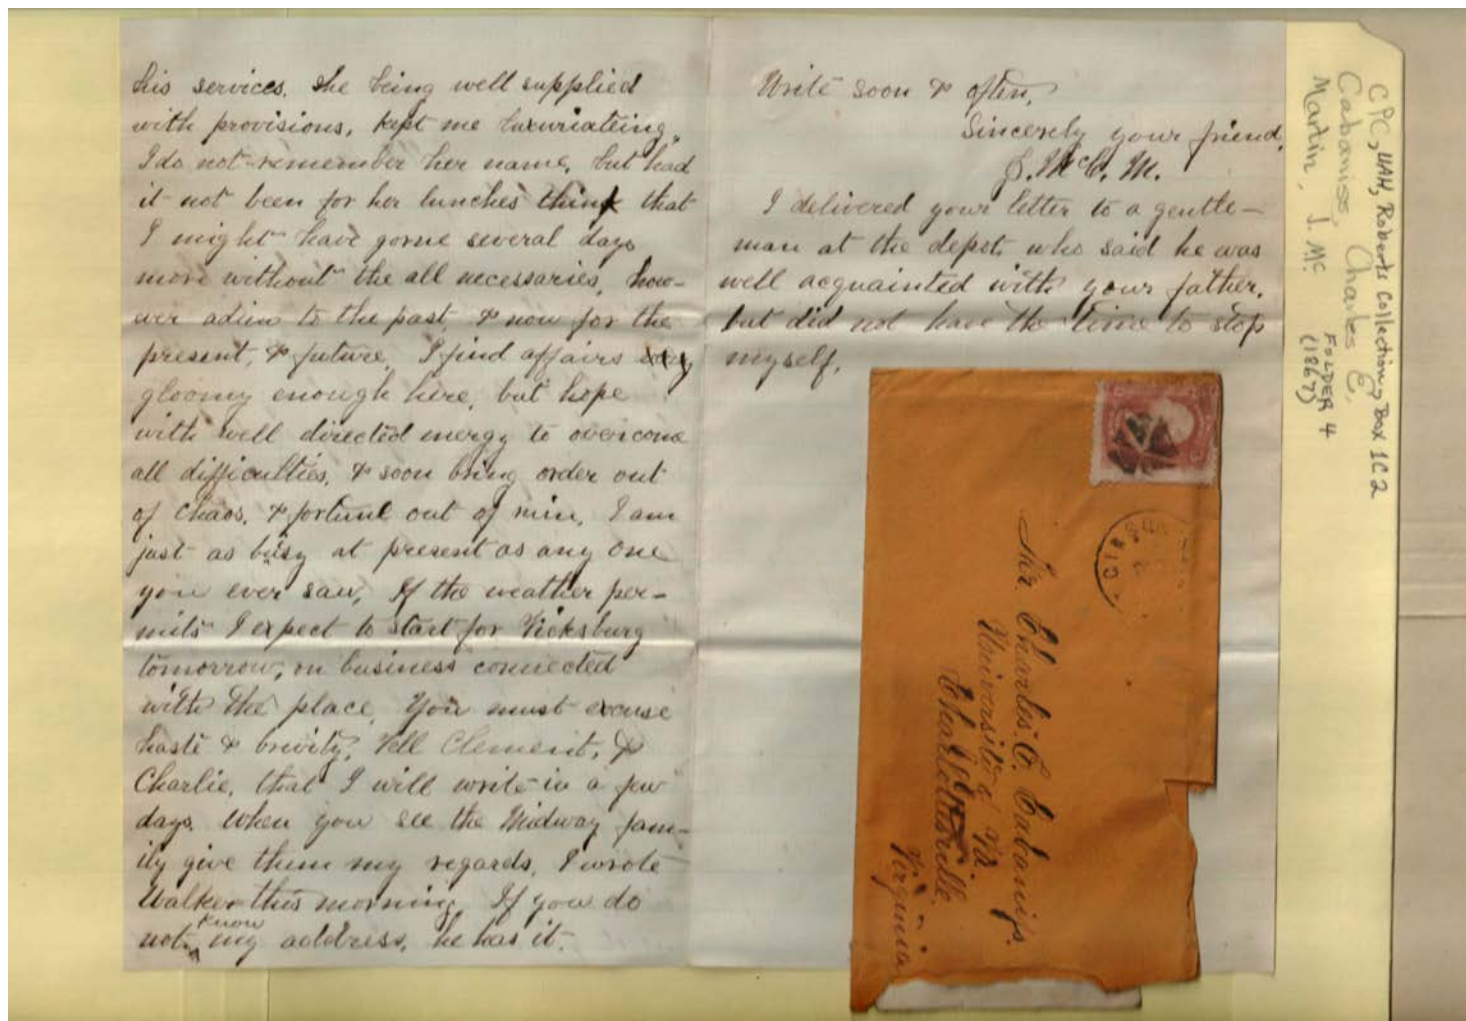 his services. she being well supplied
with provisions, kept me luxuriateing.
I do not remember her name, but had
it not been for her lunches think that
I might have gorne several days
more without the all necessaries, how-
ever adieu to the past, & now for the
present, & future. I find affairs
gloomy enough here, but hope
with well directed energy to overcome
all difficulties, & soon bring order out
of chaos, & fortune out of ruin. I am
just as busy at present as any one
you ever saw, If the weather per-
mits I expect to start for Vicksburg
tomorrow, on business connected
with the place. You must excuse
haste & brevity. Tell Clement, &
Charlie, that I will write in a few
days. When you see the Midway fam-
ily give them my regards. I wrote
Walker this morning. If you do
not know my address, he has it.
Write soon & often,
Sincerely your friend,
J. McC. M.
I delivered your letter to a gentle-
man at the depot who said he was
well acquainted with your father,
but did not have the time to stop
myself.
Mr. Charles. E. Cabaniss.
University of Va
Charlottesville,
Virginia
CPC, UAH, Roberts Collection, Box 1C2
Cabaniss, Charles E.
Martin, J. Mc
FOLDER 4
(1867)